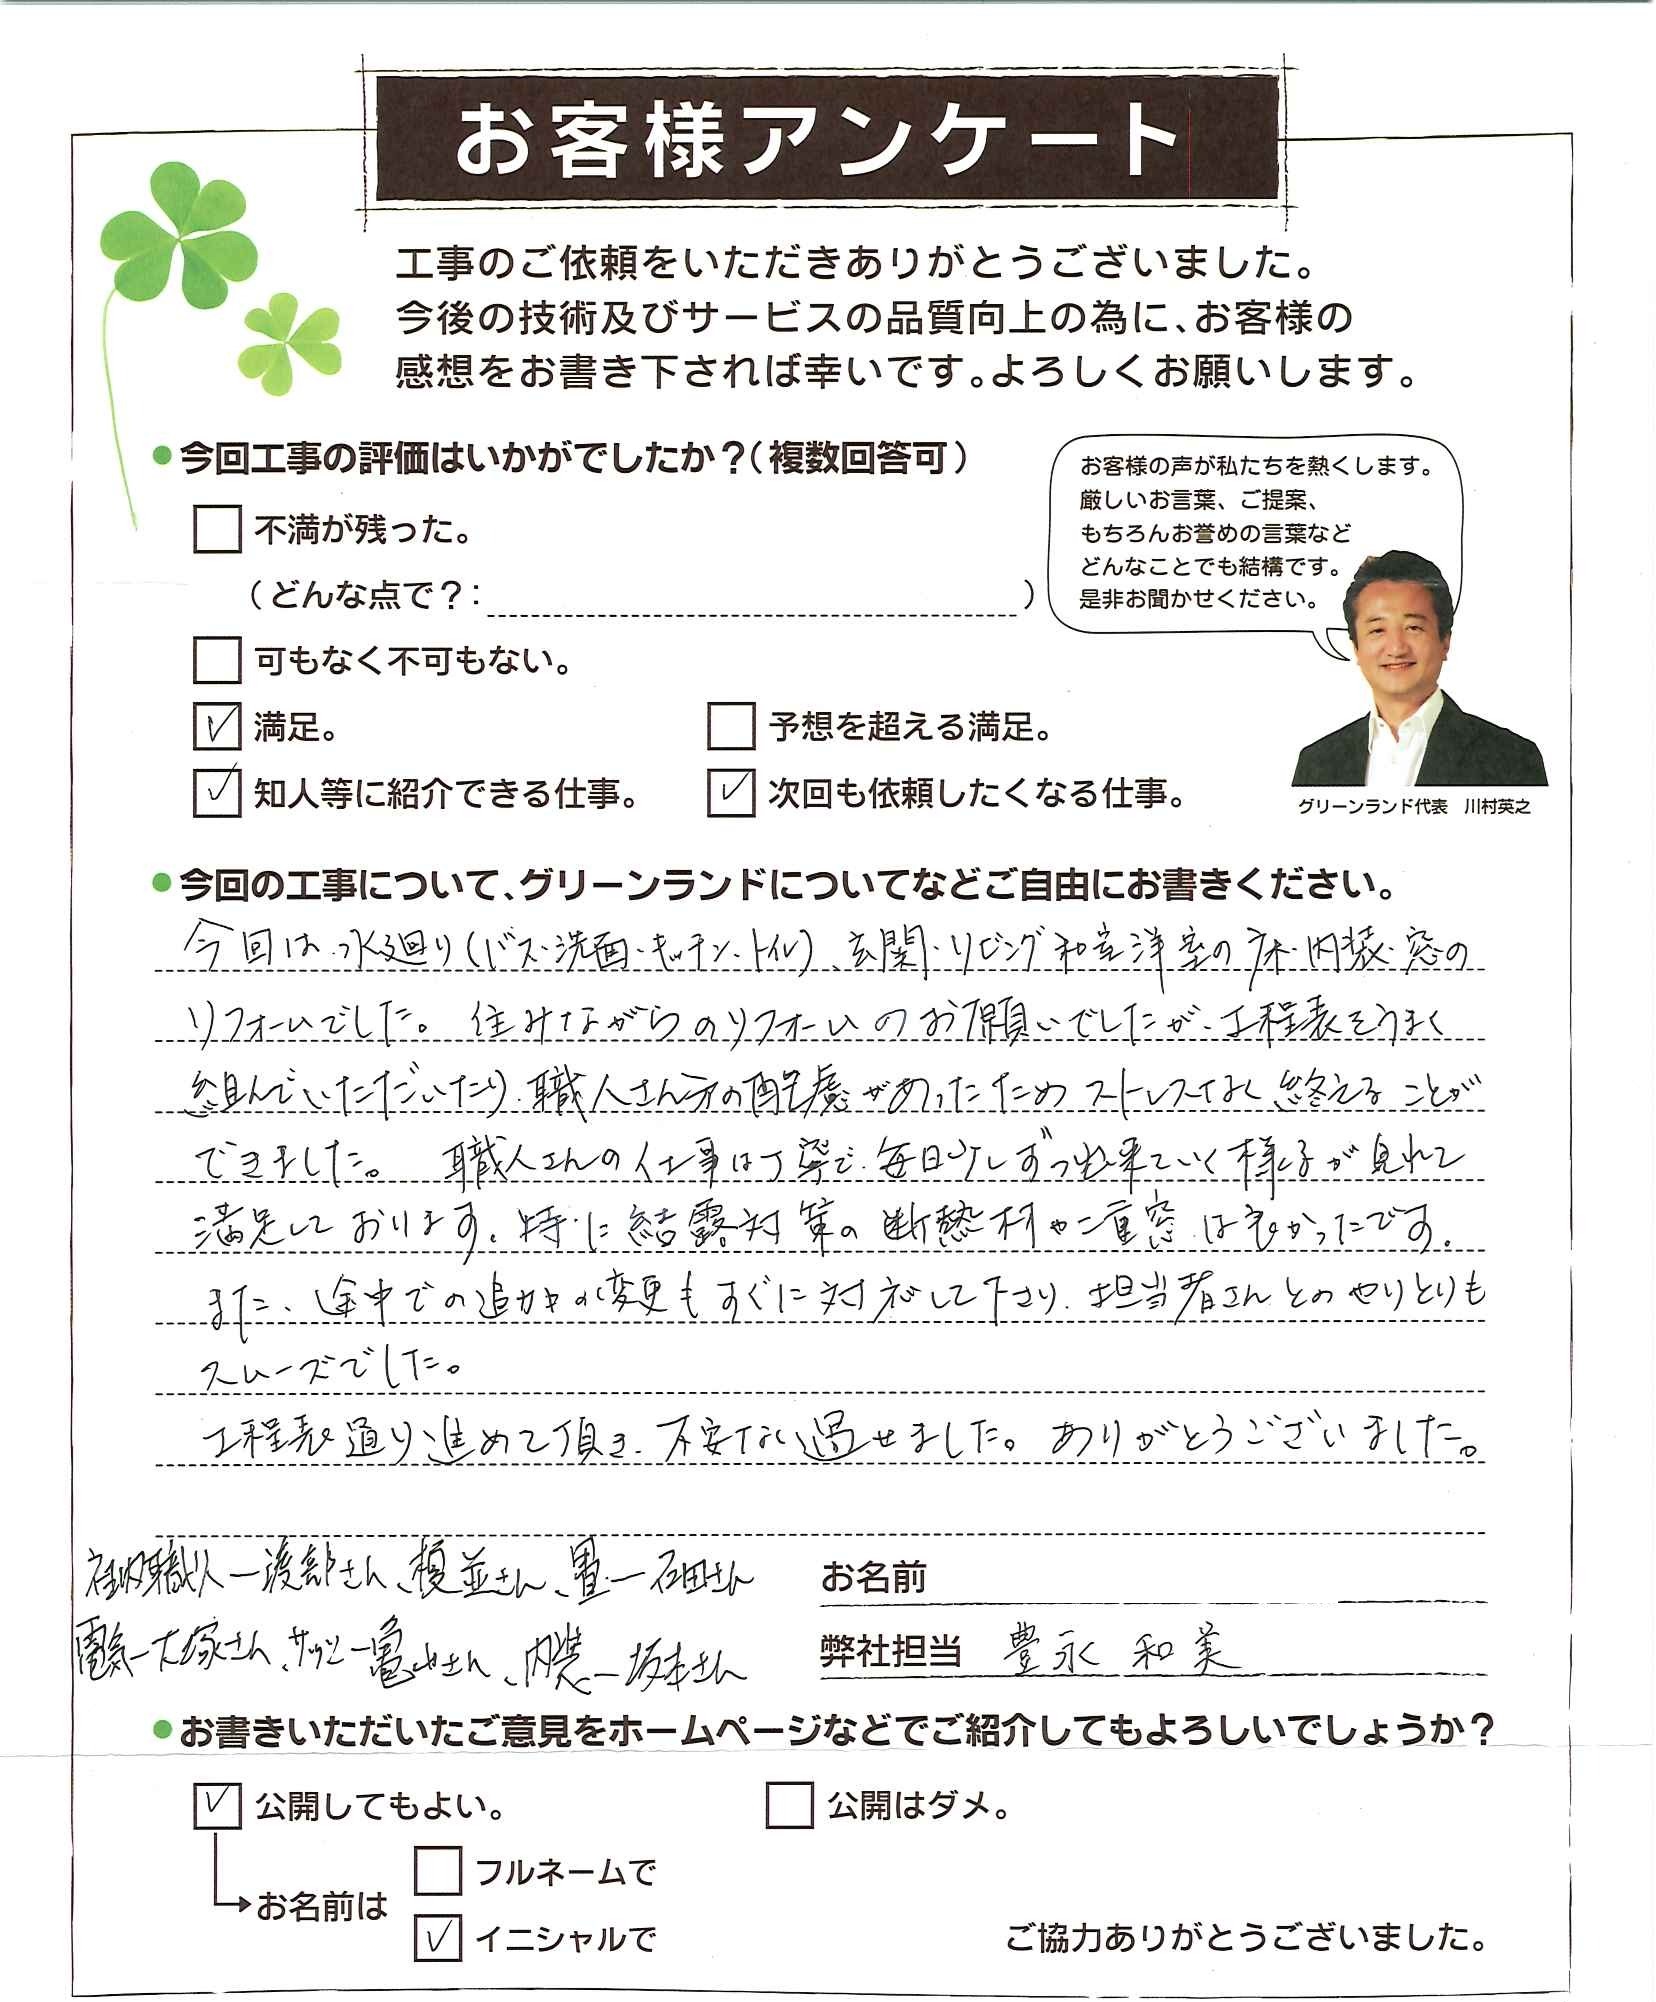 お客様アンケート
工事のご依頼をいただきありがとうございました。
今後の技術及びサービスの品質向上の為に、お客様の
感想をお書き下されば幸いです。よろしくお願いします。
●今回工事の評価はいかがでしたか？（複数回答可）
不満が残った。
（どんな点で？：　）
可もなく不可もない。
満足。
予想を超える満足。
知人等に紹介できる仕事。
次回も依頼したくなる仕事。
お客様の声が私たちを熱くします。
厳しいお言葉、ご提案、
もちろんお誉めの言葉など
どんなことでも結構です。
是非お聞かせください。
グリーンランド代表　川村英之
●今回の工事について、グリーンランドについてなどご自由にお書きください。
今回は水廻り（バス・洗面・キッチン・トイレ）、玄関・リビング 和室 洋室の床・内装・窓の
リフォームでした。 住みながらのリフォームのお願いでしたが、工程表をうまく
組んでいただいたり、職人さん方の配慮があったためストレスなく終えることが
できました。 職人さんの仕事は丁寧で、毎日少しずつ出来ていく様子が見れて
満足しております。特に結露対策の断熱材や二重窓は良かったです。
また、途中での追加の変更もすぐに対応して下さり、担当者さんとのやりとりも
スムーズでした。
工程表通り進めて頂き、不安なく過せました。ありがとうございました。
職人ー渡部さん、榎並さん、畳ー石田さん
電気ー大塚さん、サッシー亀山さん、内装ー坂本さん
お名前
弊社担当 豊永 和美
●お書きいただいたご意見をホームページなどでご紹介してもよろしいでしょうか？
公開してもよい。
公開はダメ。
お名前は
フルネームで
イニシャルで
ご協力ありがとうございました。